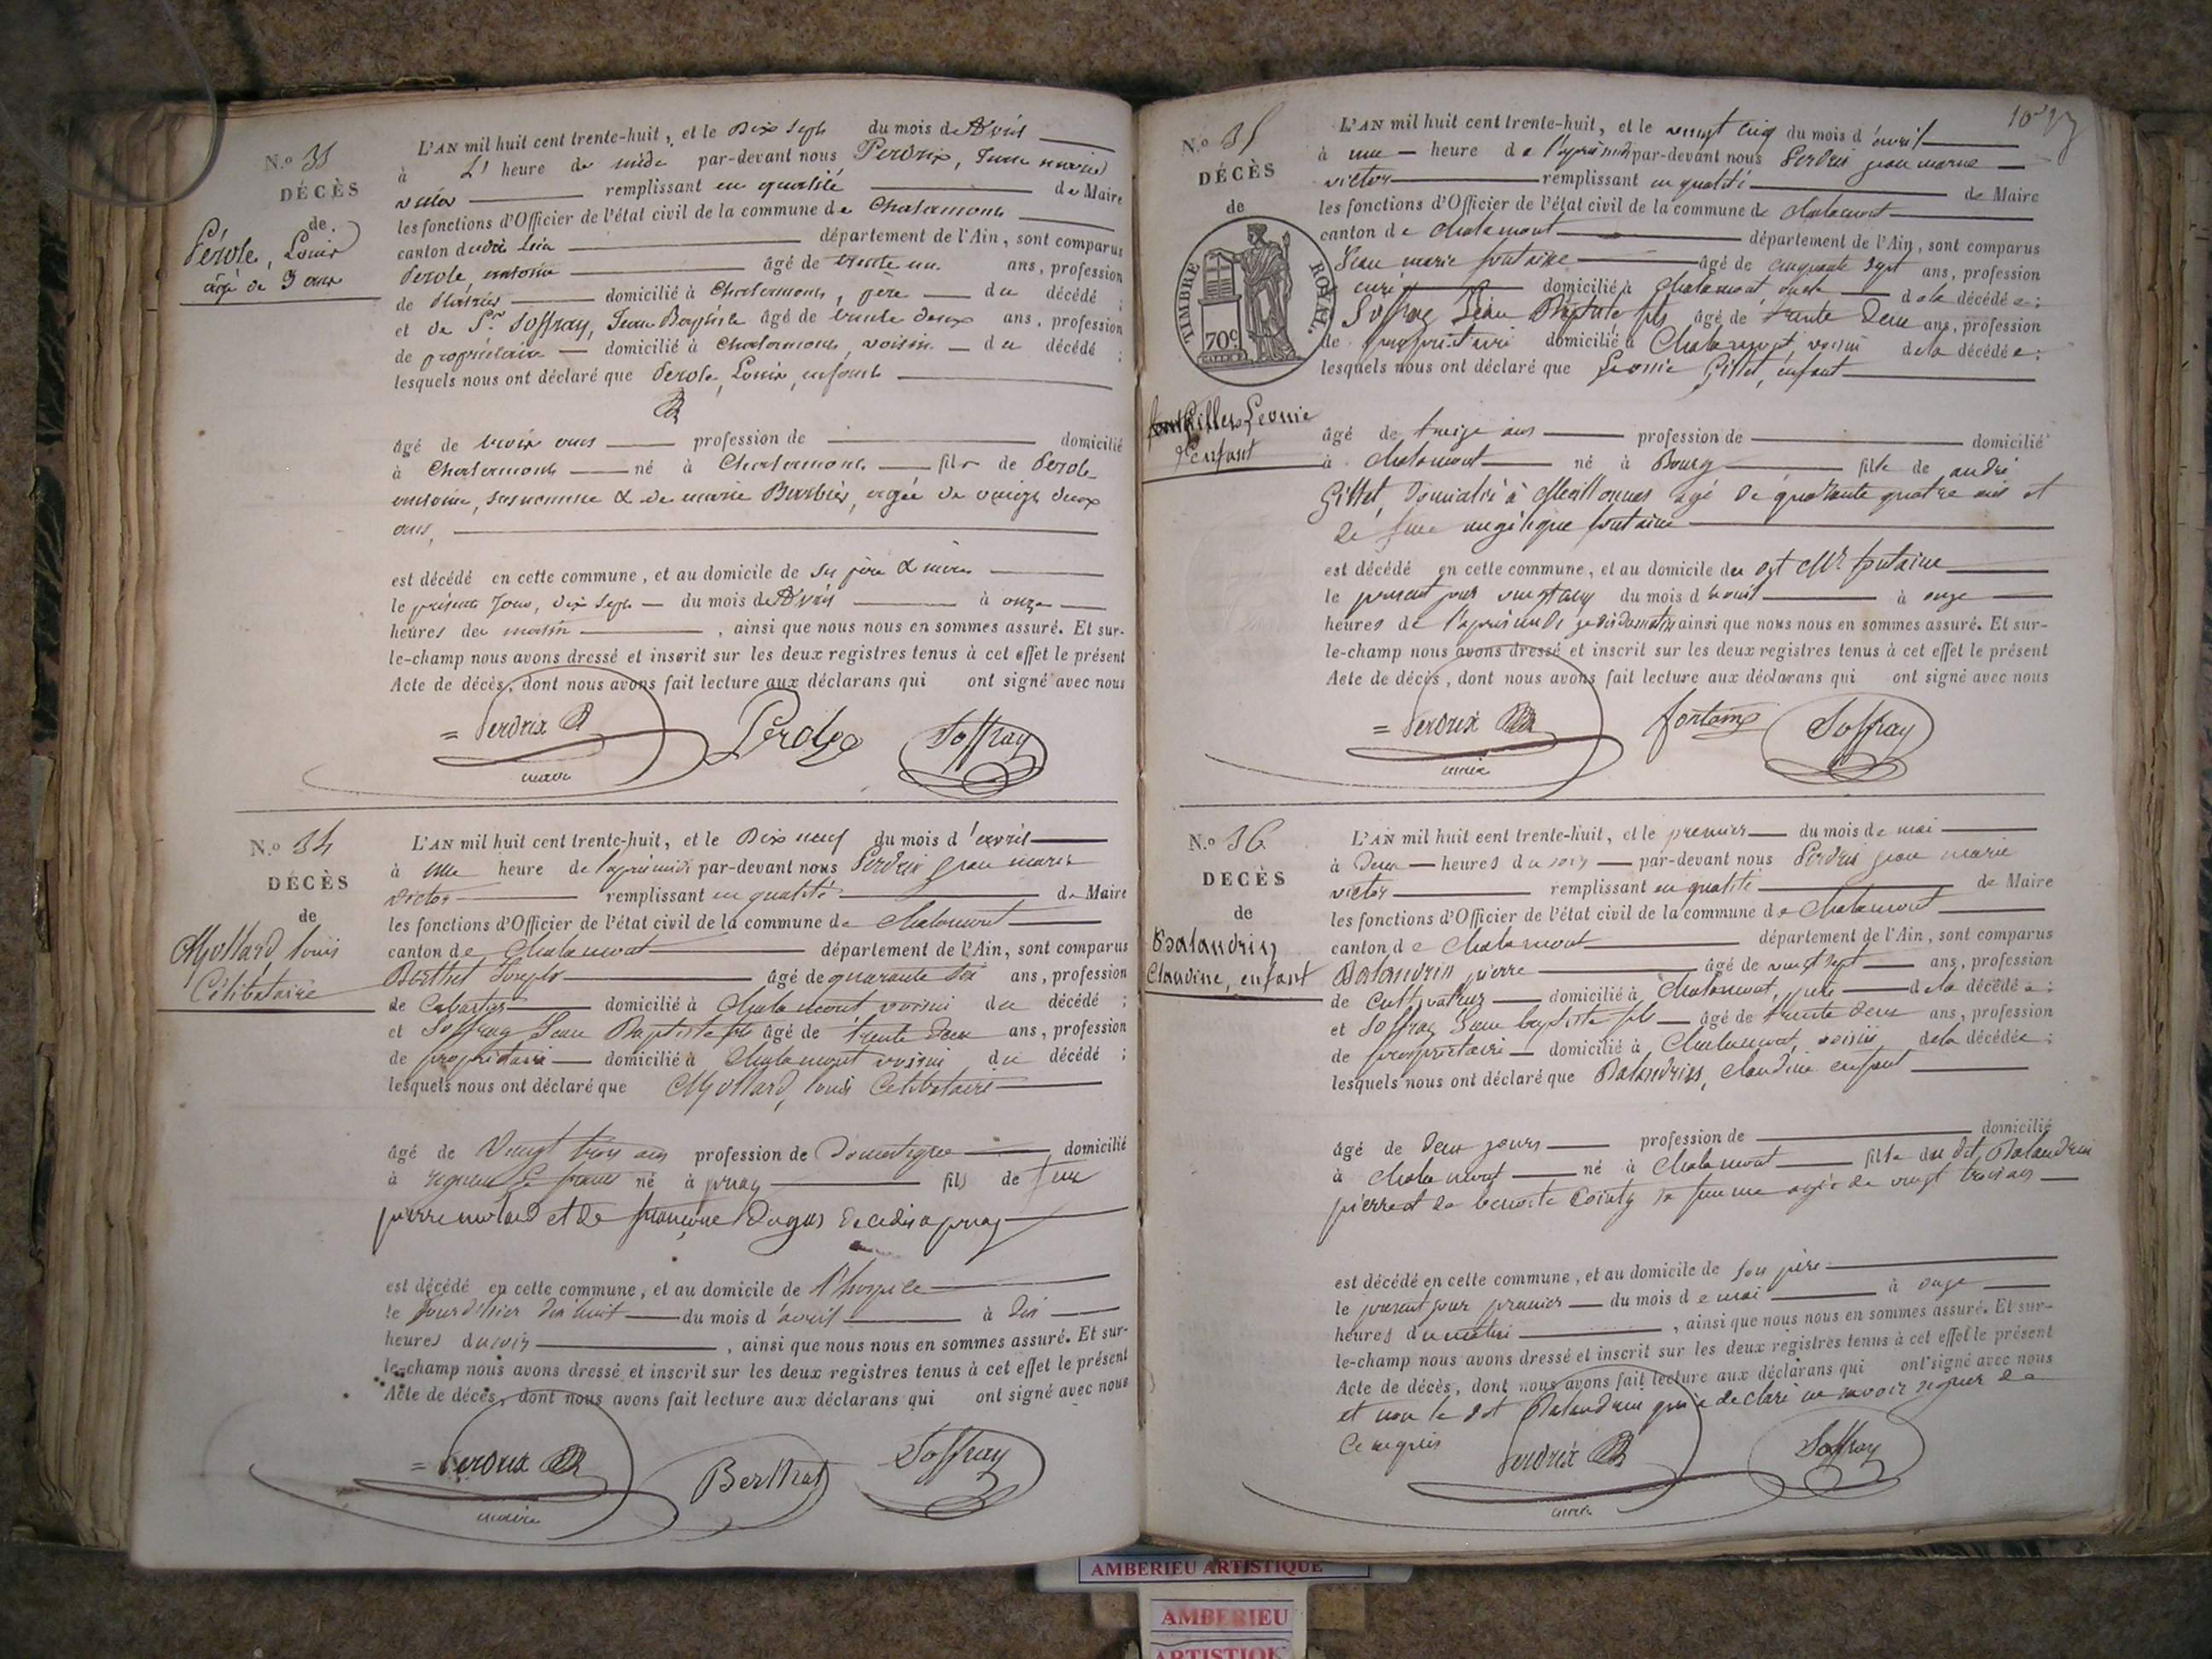 N.o 33
DÉCÈS
de
Pérole, Louis
âgé de 3 ans
L'AN mil huit cent trente-huit, et le Dix Sept du mois de Avril
à L' heure de midi par-devant nous Perdrix, Jean marie
victor remplissant en qualité de Maire
les fonctions d'Officier de l'état civil de la commune de Chalamont
canton dudit lieu département de l'Ain, sont comparus
Perole, antoine âgé de trente un ans, profession
de Platrier domicilié à Chalamont, père du décédé ;
et de Sr. Soffray, Jean Baptiste âgé de trente deux ans, profession
de propriétaire domicilié à Chalamont, voisin du décédé ;
lesquels nous ont déclaré que Perole, Louis, enfant
âgé de trois ans profession de domicilié
à Chalamont né à Chalamont fils de Perole
antoine, susnommé & de marie Barbier, agée de vingt deux
ans,
est décédé en cette commune, et au domicile de ses père & mère
le présent Jour, dix sept du mois de Avril à onze
heures du matin , ainsi que nous nous en sommes assuré. Et sur-
le-champ nous avons dressé et inscrit sur les deux registres tenus à cet effet le présent
Acte de décès, dont nous avons fait lecture aux déclarans qui ont signé avec nous
= Perdrix Perole Soffray
maire
N.o 34
DÉCÈS
de
Mollard louis
Célibataire
L'AN mil huit cent trente-huit, et le Dix neuf du mois d'avril
à une heure de l'après midi par-devant nous Perdrix jean marie
victor remplissant en qualité de Maire
les fonctions d'Officier de l'état civil de la commune de Chalamont
canton de Chalamont département de l'Ain, sont comparus
Berthet Joseph âgé de quarante six ans, profession
de Cabartier domicilié à Chalamont voisin du décédé ;
et Soffray Jean Baptiste fils âgé de trente deux ans, profession
de propriétaire domicilié à Chalamont voisin du décédé ;
lesquels nous ont déclaré que Mollard, louis Celibataire
âgé de Vingt trois ans profession de Domestique domicilié
à né à pruzy fils de feu
pierre molard et de françoise Dugas décédés a pruzy
est décédé en cette commune, et au domicile de l'hospice
le Jour d'hier dix huit du mois d'avril à dix
heures du soir , ainsi que nous nous en sommes assuré. Et sur-
le-champ nous avons dressé et inscrit sur les deux registres tenus à cet effet le présent
Acte de décès, dont nous avons fait lecture aux déclarans qui ont signé avec nous
= Perdrix Berthet Soffray
maire
N.o 35
DÉCÈS
de
TIMBRE ROYAL.
70c
Gillet Leonie
enfant
L'AN mil huit cent trente-huit, et le vingt cinq du mois d'avril
à une heure de l'après midi par-devant nous Perdrix jean marie
victor remplissant en qualité de Maire
les fonctions d'Officier de l'état civil de la commune de Chalamont
canton de Chalamont département de l'Ain, sont comparus
Jean marie fontaine âgé de cinquante sept ans, profession
curé domicilié à Chalamont oncle de la décédée ;
Soffray Jean Baptiste fils âgé de trente Deux ans, profession
de propriétaire domicilié à Chalamont, voisin de la décédée ;
lesquels nous ont déclaré que Leonie Gillet, enfant
âgé de treize ans profession de domicilié
à Chalamont né à Bourg fille de andré
Gillet, Domicilié à Meillonnas agé de quarante quatre ans et
de feue angélique fontaine
est décédé en cette commune, et au domicile du dit Mr fontaine
le present jour vingt cinq du mois d'avril à onze
heures de l'après midi je dis du matin ainsi que nous nous en sommes assuré. Et sur-
le-champ nous avons dressé et inscrit sur les deux registres tenus à cet effet le présent
Acte de décès, dont nous avons fait lecture aux déclarans qui ont signé avec nous
= Perdrix fontaine Soffray
maire
N.o 36
DECÈS
de
Balandrin
Claudine, enfant
L'AN mil huit cent trente-huit, et le premier du mois de mai
à Deux heures du soir par-devant nous Perdrix jean marie
victor remplissant en qualité de Maire
les fonctions d'Officier de l'état civil de la commune de Chalamont
canton de Chalamont département de l'Ain, sont comparus
Balandrin pierre âgé de vingt sept ans, profession
de Cultivateur domicilié à Chalamont, père de la décédée ;
et Soffray Jean baptiste fils âgé de trente deux ans, profession
de propriétaire domicilié à Chalamont, voisin de la décédée ;
lesquels nous ont déclaré que Balandrin, claudine enfant
âgé de deux jours profession de domicilié
à Chalamont né à Chalamont fille du dit Balandrin
pierre et de benoite Cointy sa femme agée de vingt trois ans
est décédé en cette commune, et au domicile de son père
le present jour premier du mois de mai à onze
heures du matin , ainsi que nous nous en sommes assuré. Et sur-
le-champ nous avons dressé et inscrit sur les deux registres tenus à cet effet le présent
Acte de décès, dont nous avons fait lecture aux déclarans qui ont signé avec nous
et non le dit Balandrin qui a declaré ne savoir signer de
ce requis
Perdrix Soffray
maire
AMBERIEU ARTISTIQUE
AMBERIEU
ARTISTIQUE